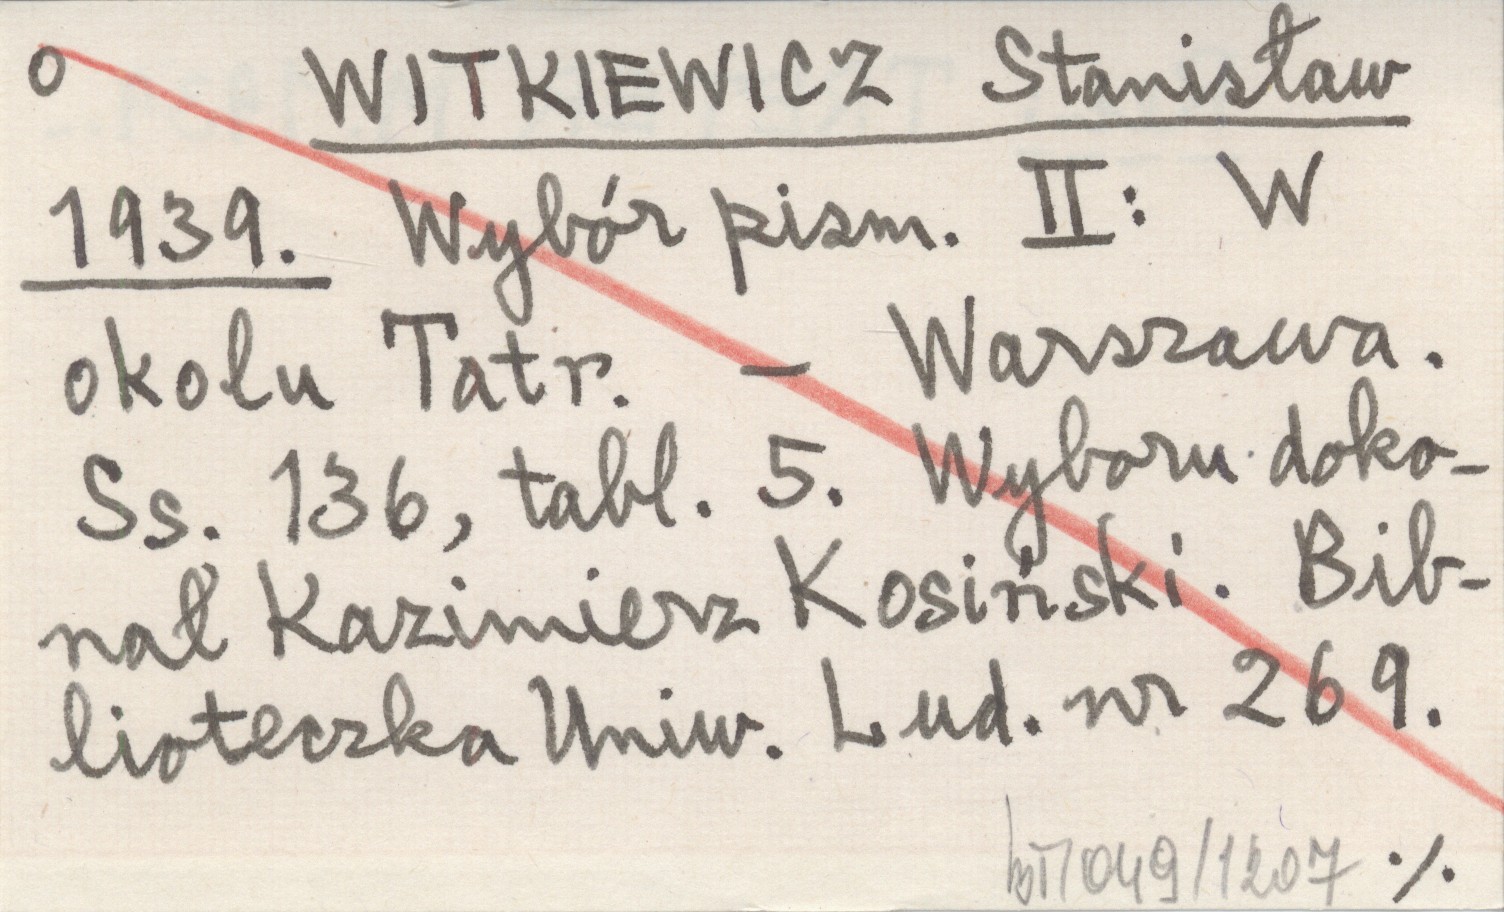 o WITKIEWICZ Stanisław
1939. Wybór pism. II: W
okolu Tatr. – Warszawa.
Ss. 136, tabl. 5. Wyboru doko-
nał Kazimierz Kosiński. Bib-
lioteczka Uniw. Lud. nr 269.
049/1207 ./.